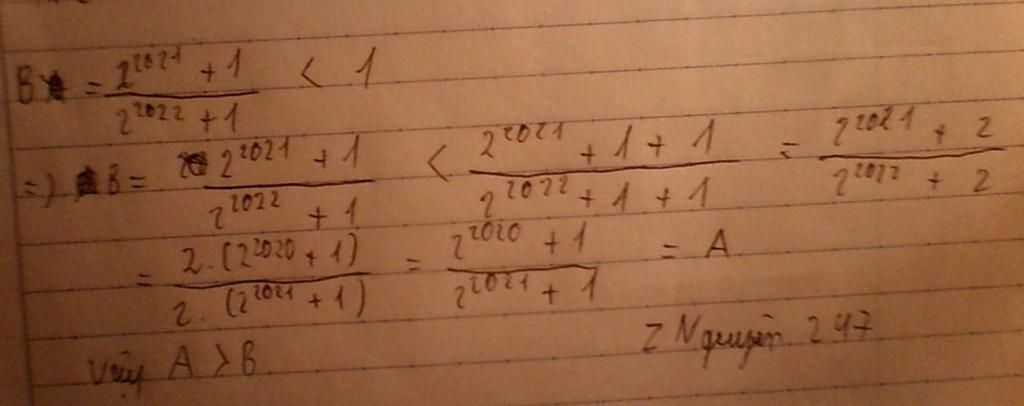 B = \frac{2^{2021} + 1}{2^{2022} + 1} < 1
=) B = \frac{2^{2021} + 1}{2^{2022} + 1} < \frac{2^{2021} + 1 + 1}{2^{2022} + 1 + 1} = \frac{2^{2021} + 2}{2^{2022} + 2}
= \frac{2.(2^{2020} + 1)}{2.(2^{2021} + 1)} = \frac{2^{2020} + 1}{2^{2021} + 1} = A
Vậy A > B
Z Nguyễn 247